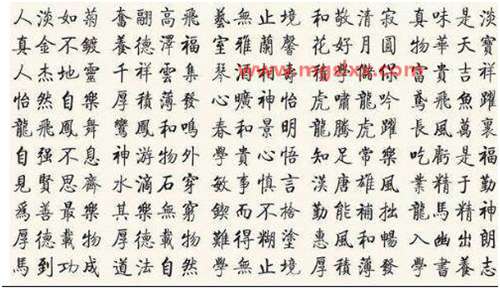 人淡如菊 奮翮高飛 藝無止境 和敬清寂 真味是淡
真金不鍍 養德澤福 室雅蘭馨 花好月圓 物華天寶
人杰地靈 千祥雲集 琴心 富貴吉祥
怡然自樂 厚積薄發 心曠神怡 虎嘯龍吟 鳶飛魚躍
龍飛鳳舞 鸞鳳和鳴 春和景明 龍騰虎躍 長風萬裏
自强不息 神游物外 學貴心悟 知足常樂 吃虧是福
見賢思齊 水滴石穿 敏事慎言 漢唐雄風 業精于勤
爲善最樂 其樂無窮 鍥而不捨 勤能補拙 龍馬精神
厚德載物 厚德載物 難得糊塗 惠風和暢 入幽出朗
馬到功成 道法自然 學無止境 厚積薄發 學書養志